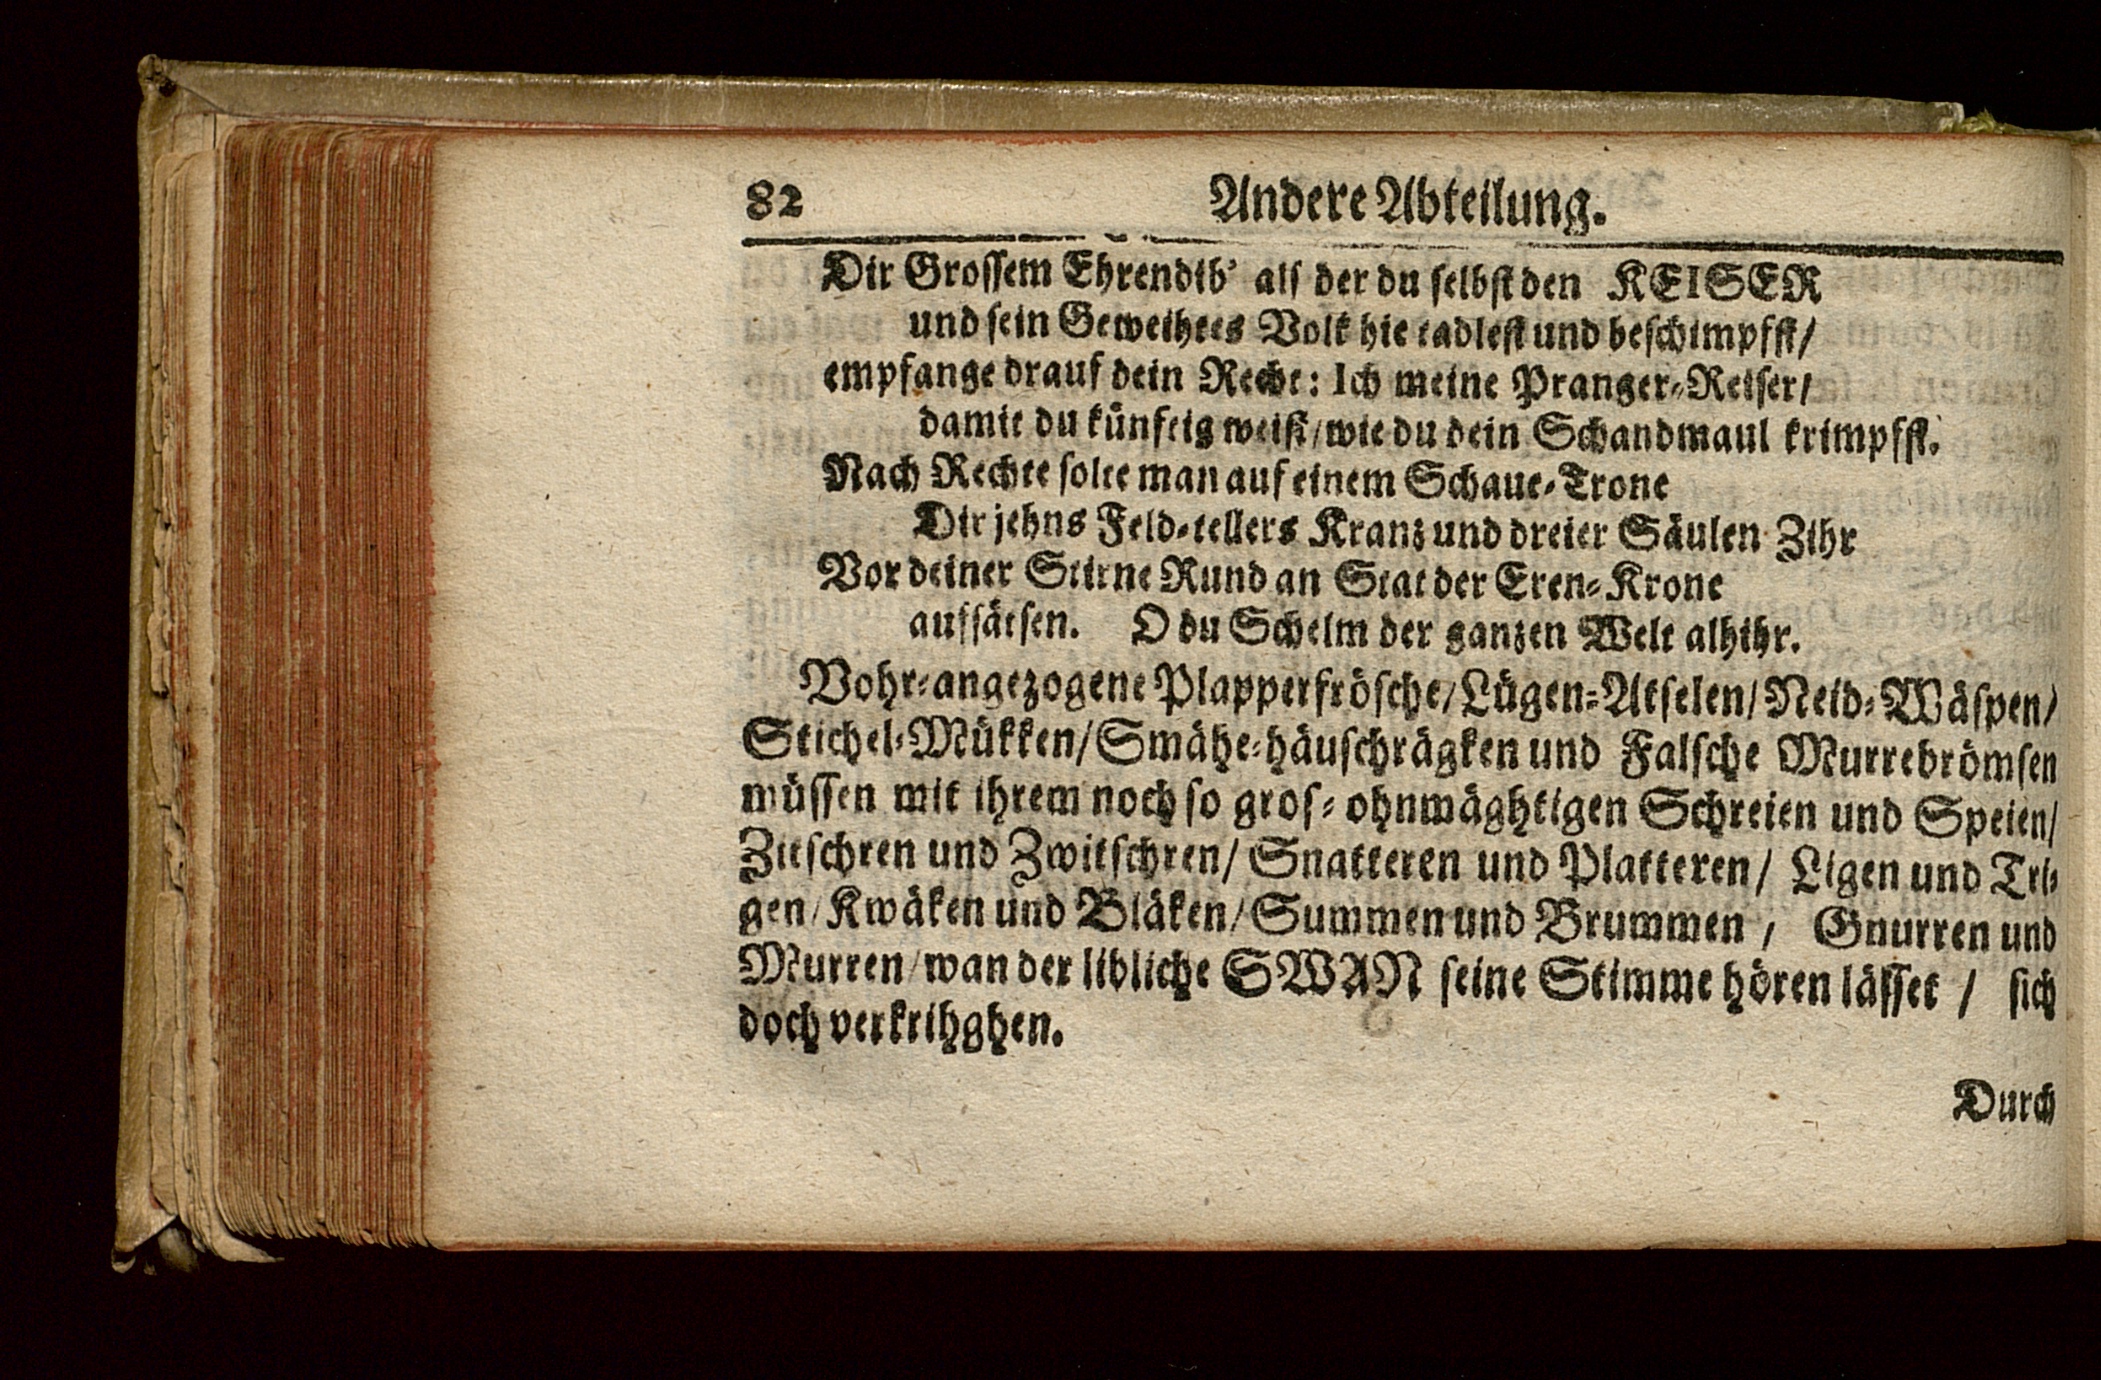 82 Andere Abteilung.
Dir Grossem Ehrendib' als der du selbst den KEISER
und sein Geweihtes Volk hie tadlest und beschimpfst/
empfange drauf dein Recht: Ich meine Pranger-Reiser/
damit du künftig weist/wie du dein Schandmaul krimpfst.
Nach Rechte solte man auf einem Schaue-Trone
Dir jehns Feld-tellers Kranz und dreier Säulen Zihr
Vor deiner Stirne Rund an Stat der Eren-Krone
aufsätsen. O du Schelm der ganzen Welt alhihr.
Vohr-angezogene Plapperfrösche/Lügen-Atselen/Neid-Wäspen/
Stichel-Mükken/Smähe-häuschrägken und Falsche Murrebrömsen
müssen mit ihrem noch so gros-ohnmäghtigen Schreien und Speien/
Zitschren und Zwitschren/Snatteren und Platteren/Ligen und Tri-
gen/Kwäken und Bläken/Summen und Brummen/Gnurren und
Murren/wan der libliche SWAN seine Stimme hören lässet/sich
doch verkrihghen.
Durch